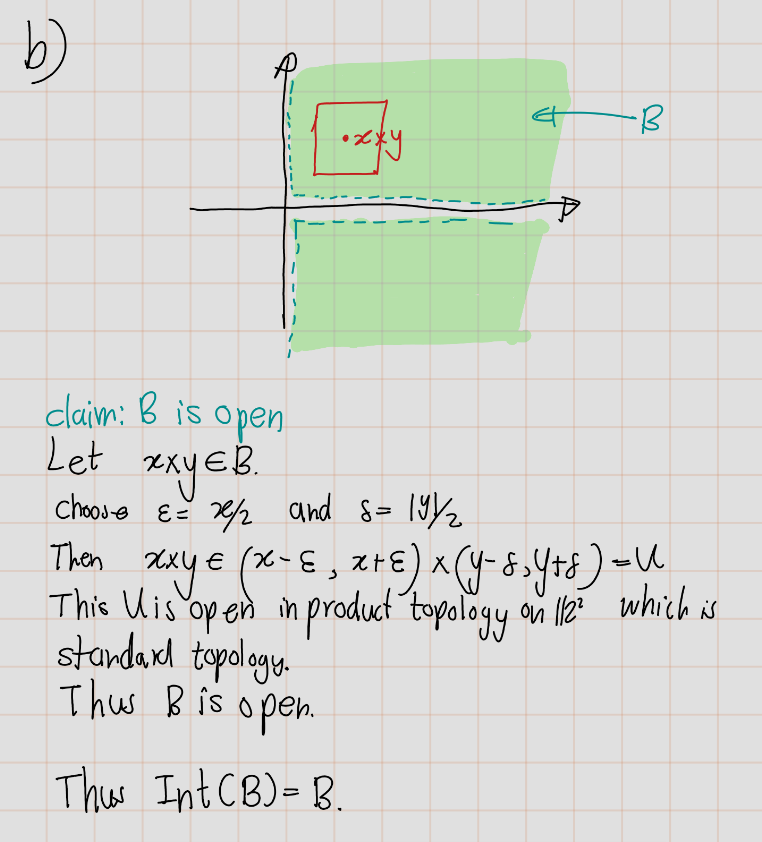 b)
B
x×y
claim: B is open
Let x×y∈B.
choose ε= x/2 and δ= |y|/2
Then x×y ∈ (x-ε, x+ε) × (y-δ, y+δ) = U
This U is open in product topology on ℝ² which is
standard topology.
Thus B is open.
Thus Int(B)= B.